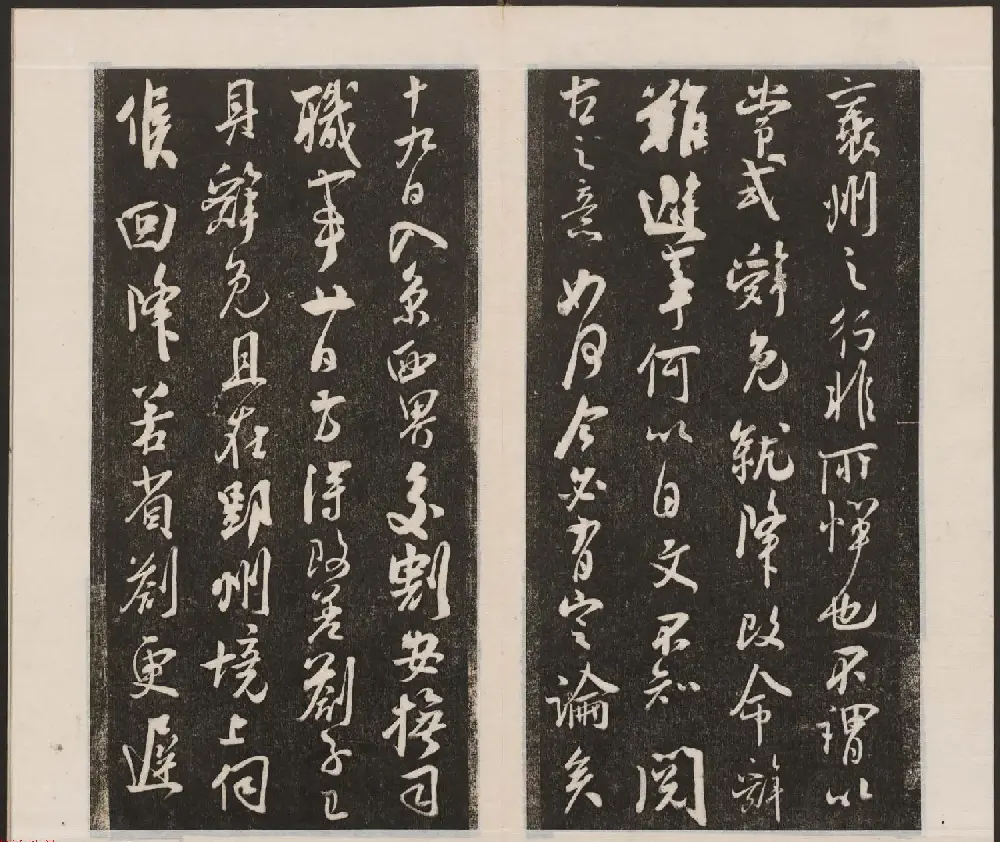 襄州之行非所憚也不謂以
常式辭免就降改命辭
難避事何以自文不知閱
古之意如何今必有定論矣
十九日入京西界交割安撫司
職事廿日方得改差劄子已
具辭免且在鄂州境上伺
候回降若省劄更遲